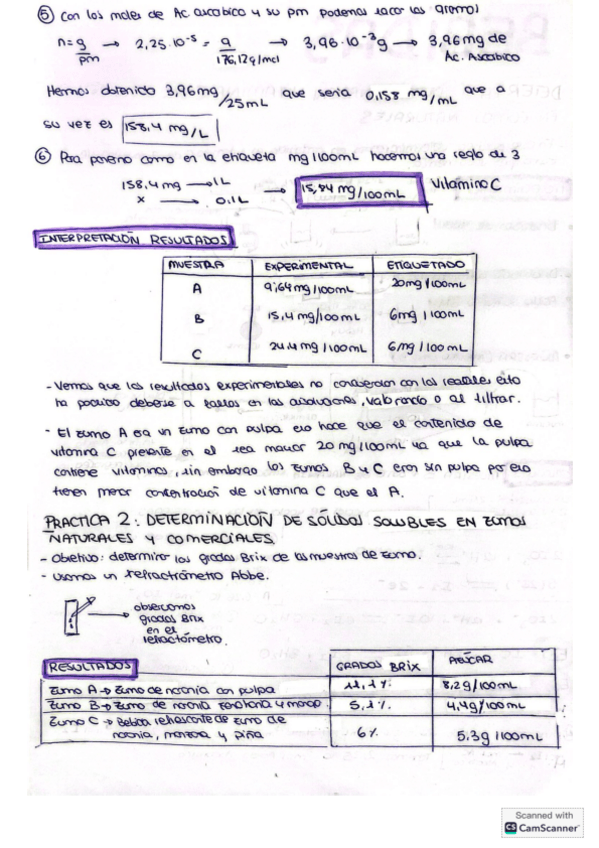 ⑤ Con los moles de Ac. ascobico y su pm podemos sacar los gramos
n=g/pm → 2,25.10⁻⁵ = g/176,12g/mol → 3,96.10⁻³g → 3,96mg de Ac. Ascobico
Hemos obtenido 3,96mg/25mL que seria 0,158 mg/mL que a
su vez es 158,4 mg/L
⑥ Para ponerlo como en la etiqueta mg/100mL hacemos una regla de 3
158,4mg → 1L
x → 0,1L → 15,84 mg/100mL Vitamina C
INTERPRETACIÓN RESULTADOS
MUESTRA EXPERIMENTAL ETIQUETADO
A 9,64mg/100mL 20mg/100mL
B 15,4mg/100mL 6mg/100mL
C 24,4mg/100mL 6mg/100mL
- Vemos que los resultados experimentales no concuerdan con los reales esto
ha podido deberse a fallos en las disoluciones, valorando o al filtrar.
- El zumo A era un zumo con pulpa eso hace que el contenido de
vitamina C presente en el sea mayor 20mg/100mL ya que la pulpa
contiene vitaminas, sin embargo los zumos B y C eran sin pulpa por eso
tienen menor concentración de vitamina C que el A.
PRACTICA 2: DETERMINACIÓN DE SÓLIDOS SOLUBLES EN ZUMOS
NATURALES Y COMERCIALES.
- Objetivo: determinar los grados Brix de las muestras de zumo.
- Usamos un refractrómetro Abbe.
→ observamos
grados Brix
en el
refractómetro.
RESULTADOS GRADOS BRIX AZÚCAR
Zumo A → Zumo de naranja con pulpa 11,1% 8,2g/100mL
Zumo B → Zumo de naranja zanahoria y mango 5,1% 4,4g/100mL
Zumo C → Bebida refrescante de zumo de
naranja, manzana y piña 6% 5,3g/100mL
Scanned with
CS CamScanner